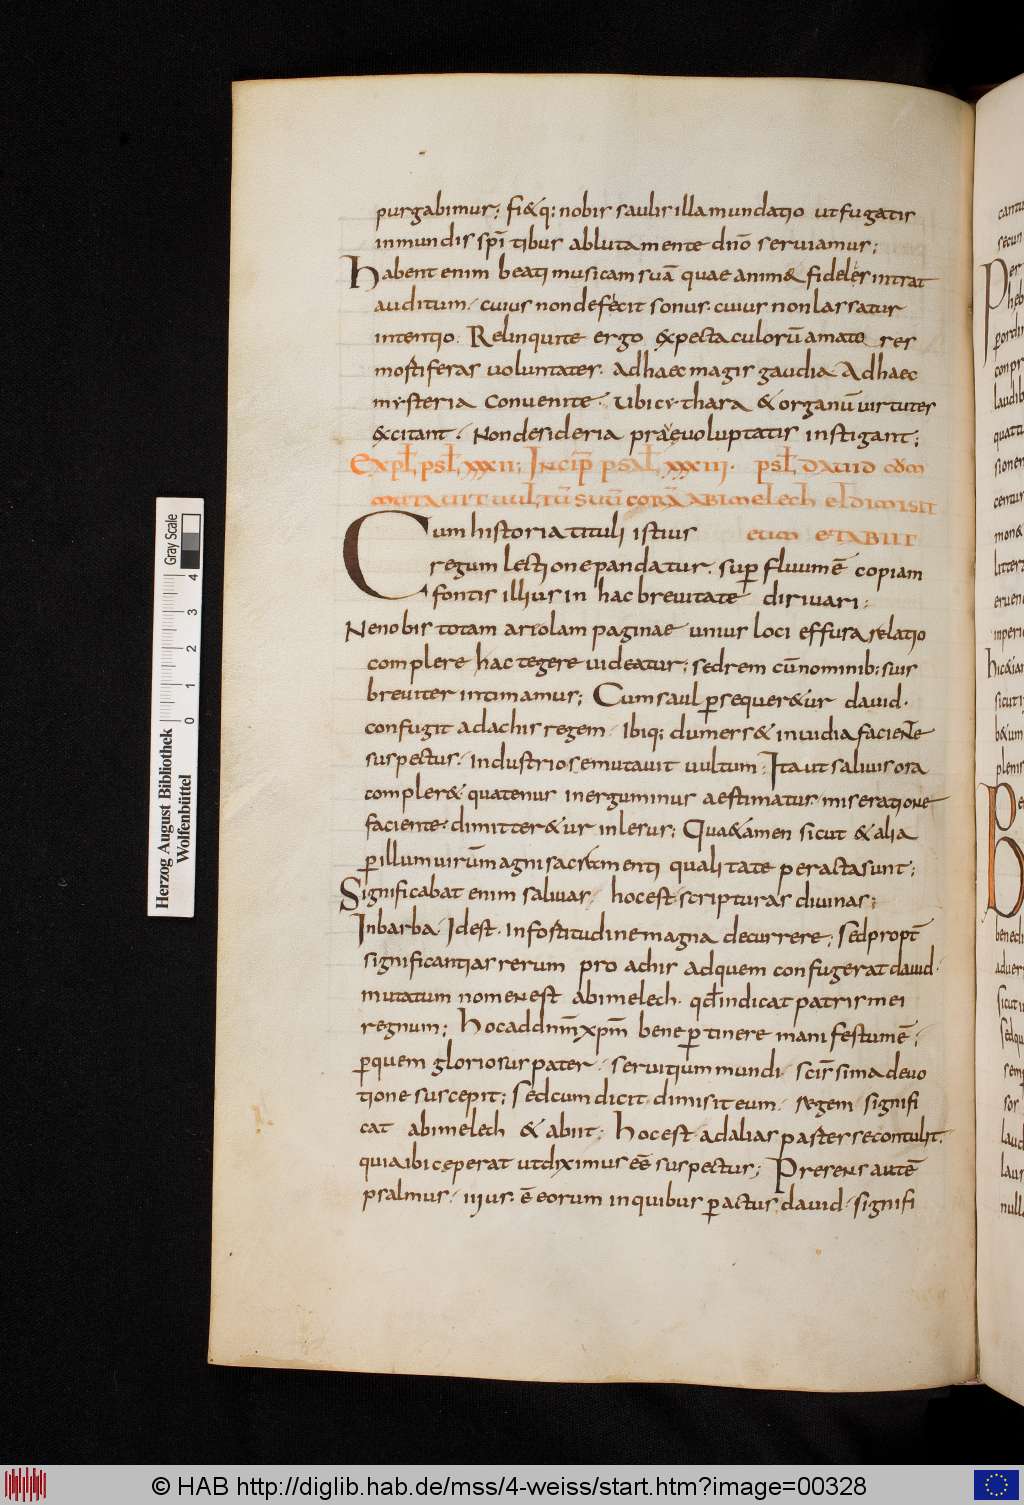 purgabimur; fi&q; nobis salubris illa mundatio ut fugatis
inmundis spī tibus abluta mente dn̄o seruiamus;
Habent enim beati musicam suā quae anim& fideles intrat
auditum. cuius non defecit sonus. cuius non lassatur
intentio. Relinquite ergo expectaculorū amatores
mostiferas uoluntates. Adhaec magis gaudia Adhaec
mysteria conuenite. Ubi cythara & organū uirtutes
&citant. Non desideria praeuoluptatis instigant;
Expł psł xxxii; Incip̄ psał xxxiii. psł dauid cūm
mutauit uultū suū corā abimelech el dimisit
Cum historia tituli istius eum et abiit
regum lectione pandatur. sup̄ fluum ē copiam
fontis illius in hac breuitate diriuari;
Ne nobis totam ariolam paginae unius loci effusa relatio
complere hac tegere uideatur; sed rem cū nominib; suis
breuiter intimamus; Cum saul p̄sequer&ur dauid.
confugit ad achis regem. Ibiq; dum ers& inuidia faciente
suspectus. industriose mutauit uultum; Ita ut saliuis ora
compler& quatenus inerguminus aestimatus miseratione
faciente. dimitter&ur inlesus; Qua&amen sicut & alia
p̄ illum uirū magni sacramenti qualitate peracta sunt;
Significabat enim saliuas. hoc est scripturas diuinas;
In barba. Idest. In fostitudine magna decurrere; Sed propt̄
significantias rerum pro achis ad quem confugerat dauid.
mutatum nomen est abimelech. qđ indicat patris mei
regnum; hoc ad dnm̄ xpm̄ bene p̄tinere manifestum ē;
p̄ quem gloriosus pater. seruitium mundi. scis̄sima deuo
tione suscepit; Sed cum dicit dimisit eum. regem signifi
cat abimelech & abiit; Hoc est ad alias pasтes se contulit.
quia ibi ceperat ut diximus eē suspectus; Presens autē
psalmus. iijus. ē eorum in quibus p̄ actus dauid. signifi
Herzog August Bibliothek
Wolfenbüttel
Gray Scale
0 1 2 3 4
© HAB http://diglib.hab.de/mss/4-weiss/start.htm?image=00328